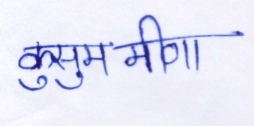 कुसुम मीणा